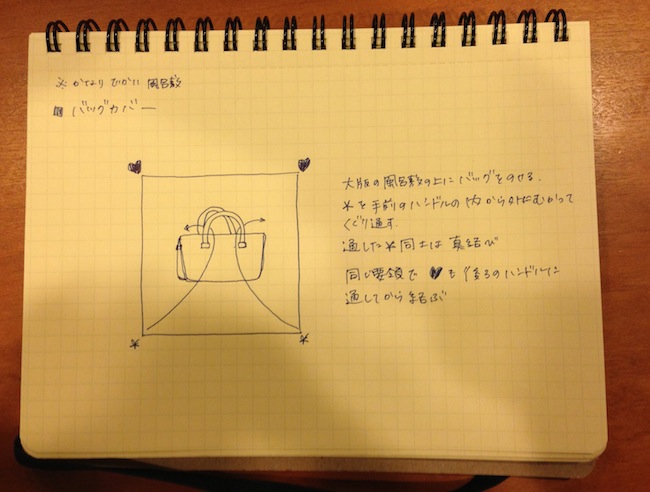 ※かなり でかい 風呂敷
▣ バッグカバー
大版の風呂敷の上にバッグをのせる.
*を手前のハンドルの内から外にむかって
くぐり通す.
通した*同士は真結び
同じ要領で♥も後ろのハンドルに
通してから結ぶ
♥ ♥
* *